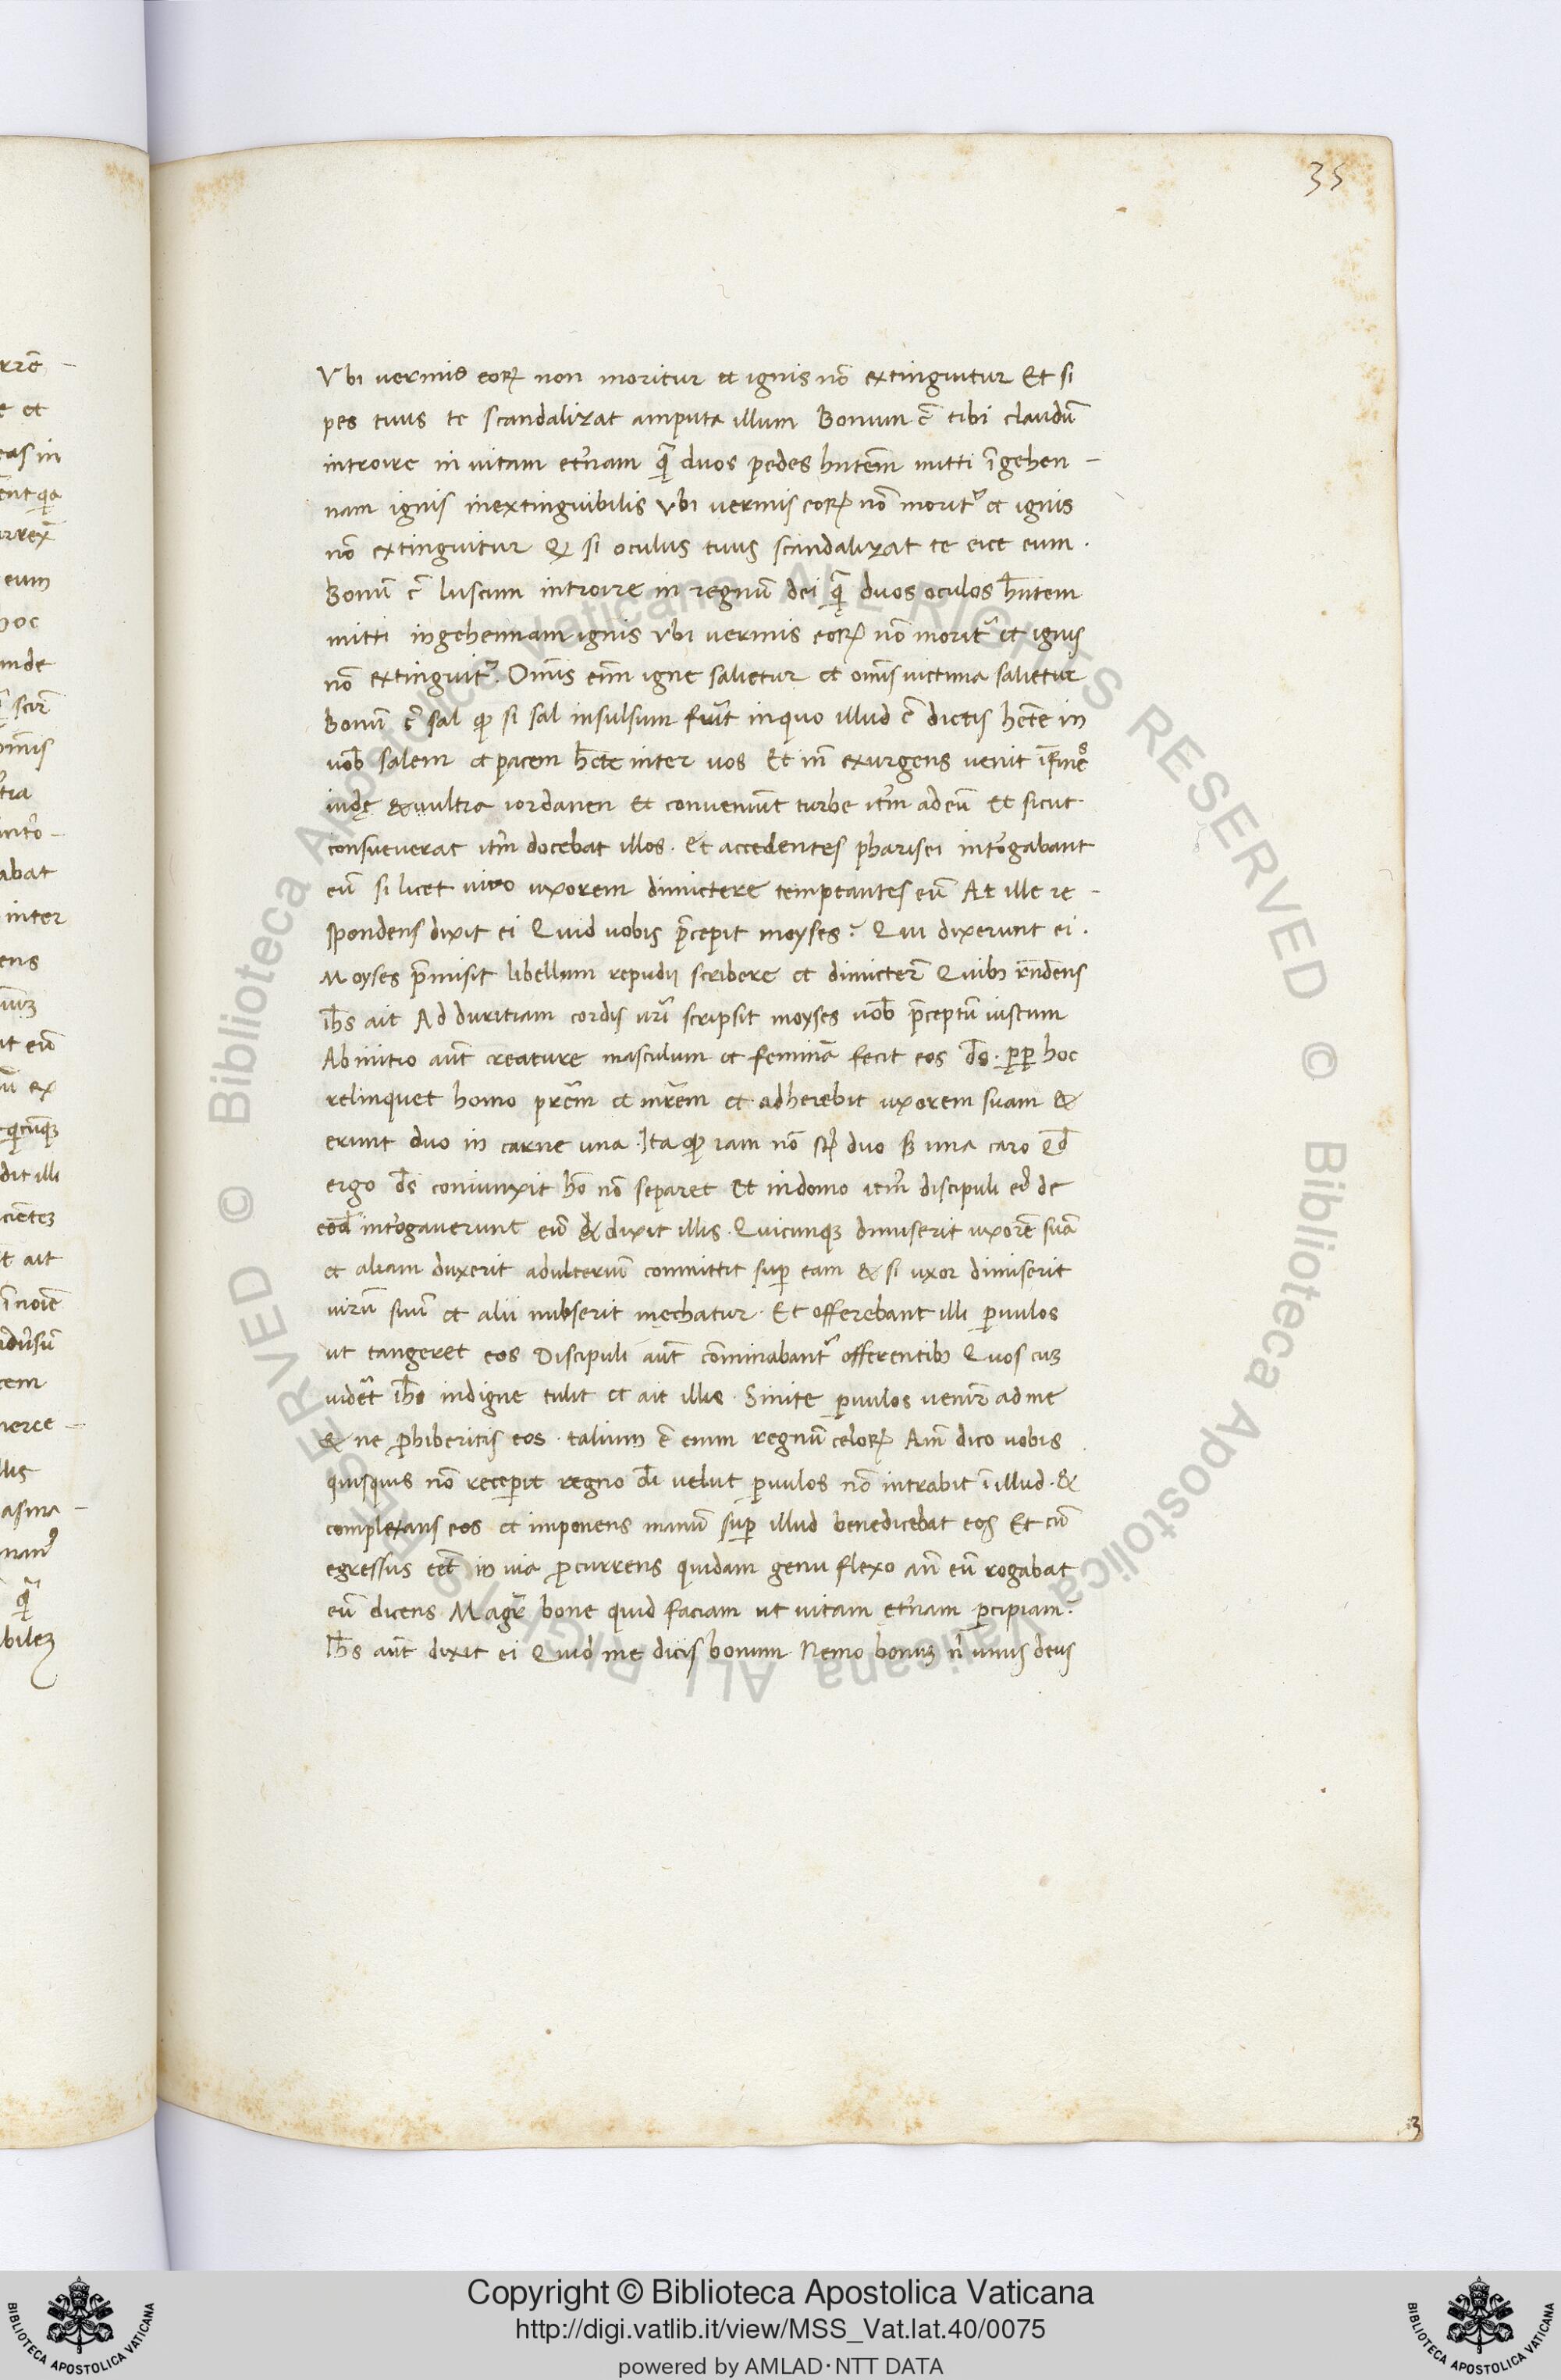 35
Vbi vermis eoꝝ non moritur et ignis nō extinguitur Et si
pes tuus te scandalizat amputa illum Bonum ē tibi claudū
introire in uitam et̾nam qᷓ duos pedes hn̄tem mitti ī gehen-
nam ignis inextinguibilis Vbi vermis eoꝝ nō morit᷑ et ignis
nō extinguitur Qꝫ si oculus tuus scandalizat te eice eum.
Bonū ē luscum introire in regnū dei qᷓ duos oculos hn̄tem
mitti in gehennam ignis Vbi vermis eoꝝ nō morit᷑ et ignis
nō extinguit᷑. Om̄is eīm igne salietur et om̄is uictima salietur
Bonū ē sal qꝫ si sal insulsum fuīt in quo illud ē dictis hēte in
uob̄ salem et pacem hēte inter uos Et īn exurgens venit ī fines
iudę & ultra iordanen Et conveniūt turbe it̄m ad eū Et sicut
consueverat it̄m docebat illos. Et accedentes pharisei int̾ogabant
eū si licet uiro uxorem dimictere temptantes eū At ille re-
spondens dixit ei Quid uobis p̄cepit moyses? Qui dixerunt ei.
Moyses p̄misit libellum repudii scribere et dimicter̄ Quibꝫ rn̄dens
ih̄s ait Ad duritiam cordis ur̄i scripsit moyses uob̄ p̄ceptū iustum
Ab initio aūt creature masculum et feminā fecit eos dś. ꝓꝑ hoc
relinquet homo pr̄em et mr̄em et adherebit uxorem suam &
erunt duo in carne una. Ita qꝫ iam nō st̄ duo sꝫ una caro qd̄
ergo dś coniunxit hō nō separet Et in domo it̄m discipuli ei᷒ de
eod̄ int̾ogaverunt eū & dixit illis. Quicunqꝫ dimiserit uxorē suā
et aliam duxerit adulteriū committit suꝑ eam & si uxor dimiserit
uirū suū et alii nubserit męchatur. Et offerebant illi ꝑuulos
ut tangeret eos Discipuli aūt cōminabant᷑ offerentibꝫ Quos cuꝫ
uidēt ih̄s indigne tulit et ait illis. Sinite ꝑuulos venir̄ ad me
& ne ꝓhiberitis eos. talium ē enim regnū celoꝝ Am̄ dico uobis
quisquis nō receperit regno d̄i velut ꝑuulos nō intrabit ī illud. &
complexans eos et imponens manū suꝑ illud benedicebat eos Et cū
egressus eēt in via ꝓcurrens quidam genu flexo an̄ eū rogabat
eū dicens Magr̄ bone quid faciam ut uitam et̾nam ꝑcipiam.
Ih̄s aūt dixit ei Quid me dicis bonum Nemo bonus n̄ unus deus
Copyright © Biblioteca Apostolica Vaticana
http://digi.vatlib.it/view/MSS_Vat.lat.40/0075
powered by AMLAD·NTT DATA